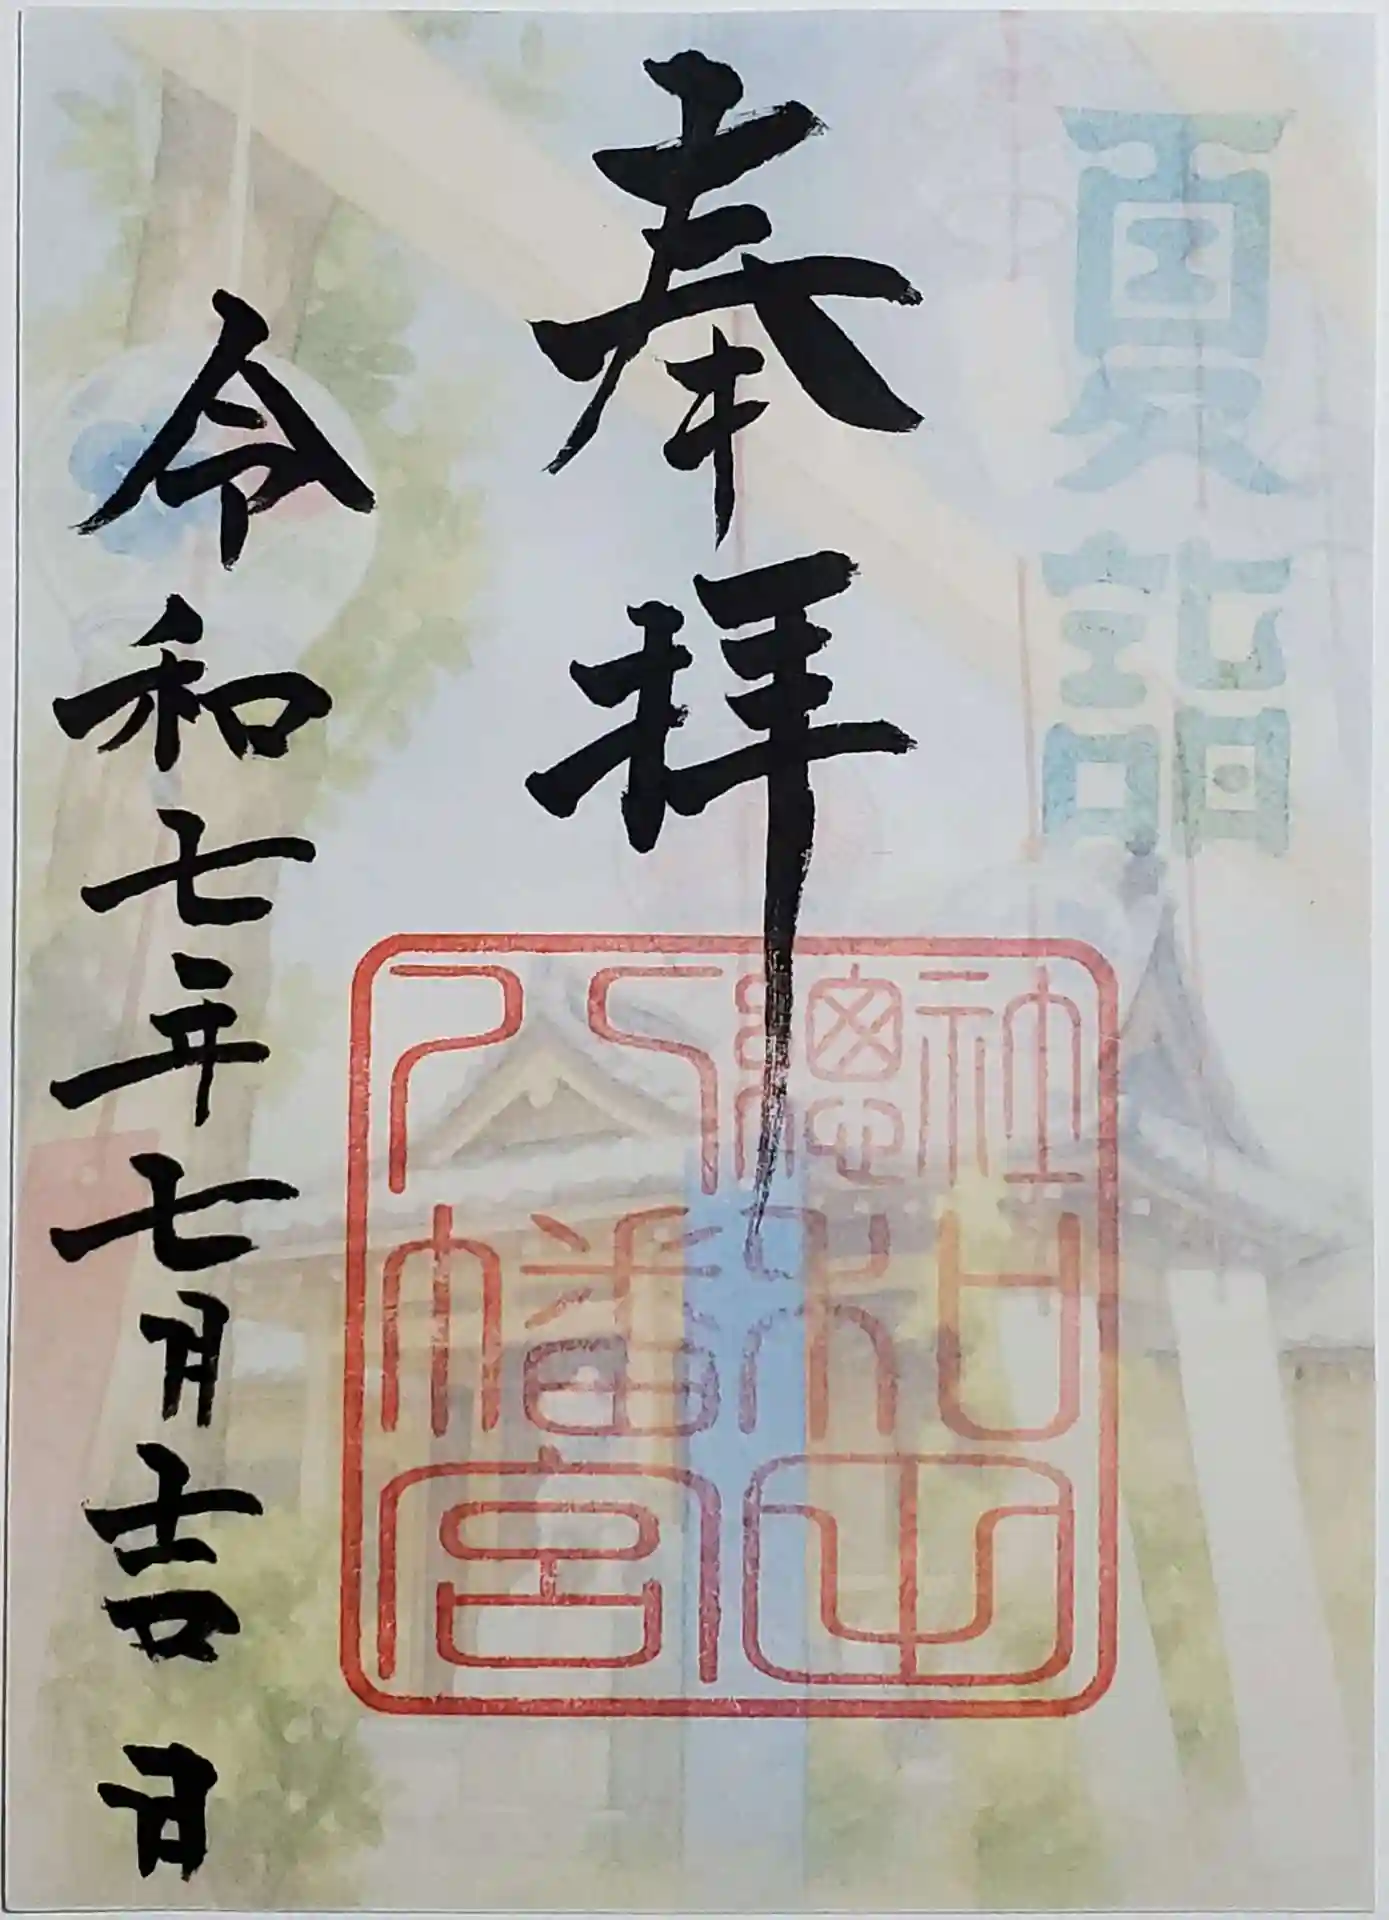 夏詣
奉拝
總社
和田
八幡宮
令和七年七月吉日